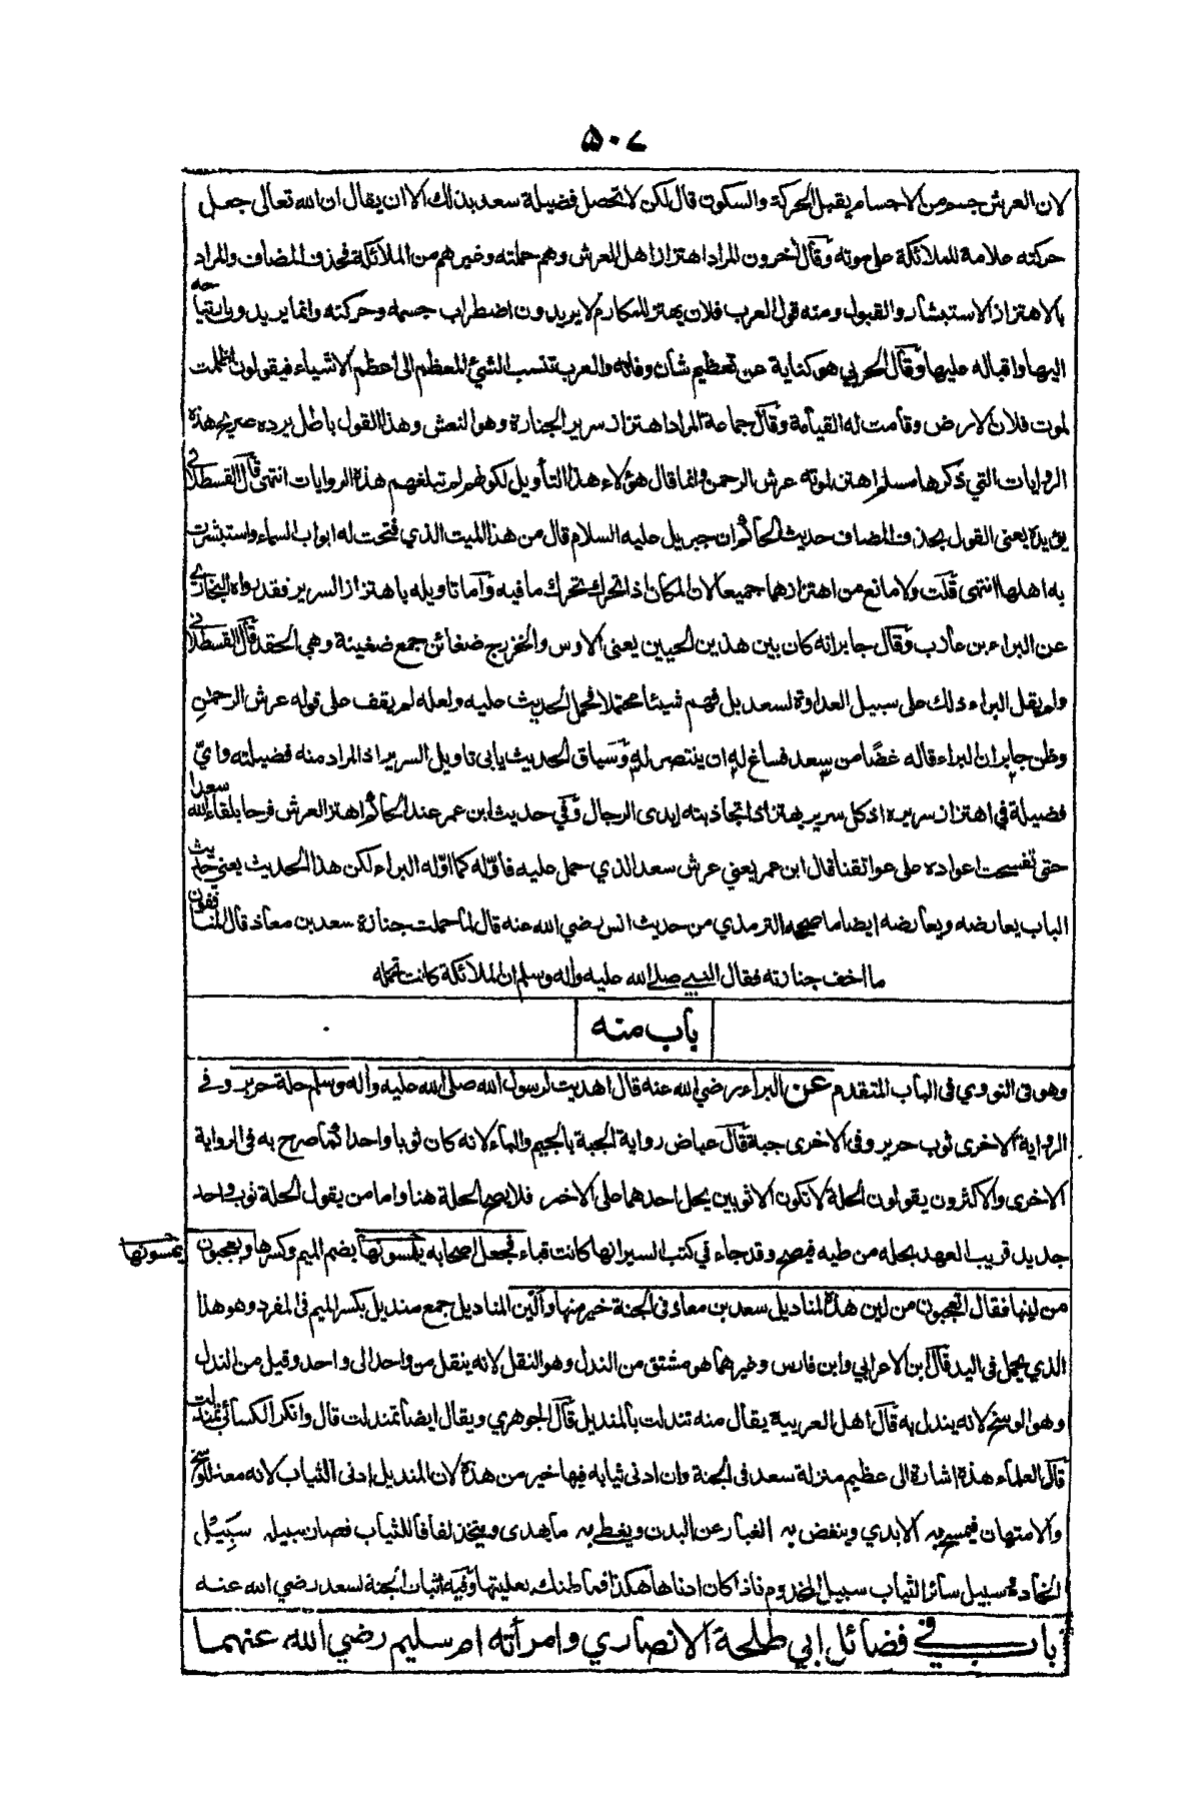 ٥٠٧
لان العرش جسم من الاجسام يقبل الحركة والسكون قال لكن لا تحصل فضيلة سعد بذلك الا ان يقال ان الله تعالى جعل
حركته علامة للملائكة على موته وقال آخرون المراد اهتزاز اهل العرش وهم حملته وغيرهم من الملائكة فحذف المضاف والمراد
بالاهتزاز الاستبشار والقبول ومنه قول العرب فلان يهتز للمكارم لا يريدون اضطراب جسمه وحركته وانما يريدون ارتياحه
اليها واقباله عليها وقال الحربي هو كناية عن تعظيم شأن وفاته والعرب تنسب الشئ المعظم الى اعظم الاشياء فيقولون اظلمت
لموت فلان الارض وقامت له القيامة وقال جماعة المراد اهتزاز سرير الجنازة وهو النعش وهذا القول باطل يرده صريح هذه
الروايات التي ذكرها مسلم اهتز لموته عرش الرحمن وانما قال هؤلاء هذا التأويل لكونهم لم تبلغهم هذه الروايات انتهى قال القسطلاني
يؤيده يعني القول بحذف المضاف حديث الحاكم ان جبريل عليه السلام قال من هذا الميت الذي فتحت له ابواب السماء واستبشرت
به اهلها انتهى قلت ولا مانع من اهتزازهما جميعا لان المكان اذا تحرك تحرك ما فيه وأما تاويله باهتزاز السرير فقد رواه البخاري
عن البراء بن عازب وقال جابر انه كان بين هذين الحيين يعنى الاوس والخزرج ضغائن جمع ضغينة وهي الحقد قال القسطلاني
ولم يقل البراء ذلك على سبيل العداوة لسعد بل فهم شيئا محتملا فحمل الحديث عليه ولعله لم يقف على قوله عرش الرحمٰن
وظن جابر ان البراء قاله غضًا من سعد فساغ له ان ينتصر له وسياق الحديث يابى تاويل السرير اذ المراد منه فضيلته وايّ
فضيلة في اهتزاز سريره اذ كل سرير يهتز اذا تجاذبته ايدى الرجال وفي حديث ابن عمر عند الحاكم اهتز العرش فرحا بلقاء الله سعدا
حتى تفسحت اعواده على عواتقنا قال ابن عمر يعني عرش سعد الذي حمل عليه فأوّله كما اوّله البراء لكن هذا الحديث يعني حديث
الباب يعارضه ويعارضه ايضا ما صححه الترمذي من حديث انس رضي الله عنه قال لما حملت جنازة سعد بن معاذ قال المنافقون
ما اخف جنازته فقال النبي صلى الله عليه وآله وسلم ان الملائكة كانت تحمله
باب منه
وهو في النووي في الباب المتقدم عن البراء رضي الله عنه قال اهديت لرسول الله صلى الله عليه وآله وسلم حلة حرير وفى
الرواية الاخرى ثوب حرير وفى الاخرى جبة قال عياض رواية الجبة بالجيم والباء لانه كان ثوبا واحدا كما صرح به في الرواية
الاخرى والاكثرون يقولون الحلة لا تكون الا ثوبين يحل احدهما على الاخر فلا يصح الحلة هنا واما من يقول الحلة ثوب واحد
جديد قريب العهد بحله من طيه فيصح وقد جاء في كتب السير انها كانت قباء فجعل اصحابه يلمسونها بضم الميم وكسرها ويعجبون
يمسونها
من لينها فقال اتعجبون من لين هذه لمناديل سعد بن معاذ في الجنة خير منها وألين المناديل جمع منديل بكسر الميم في المفرد وهو هذا
الذي يحمل في اليد قال ابن الاعرابي وابن فارس وغيرهما هو مشتق من الندل وهو النقل لانه ينقل من واحد الى واحد وقيل من الندل
وهو الوسخ لانه يندل به قال اهل العربية يقال منه تندلت بالمنديل قال الجوهري ويقال ايضا تمندلت قال وانكر الكسائي تمندلت
قال العلماء هذه اشارة الى عظيم منزلة سعد في الجنة وان ادنى ثيابه فيها خير من هذة لان المنديل ادنى الثياب لانه معد للوسخ
والامتهان فيمسح به الايدي وينفض به الغبار عن البدن ويغطى به ما يهدى ويتخذ لفافا للثياب فصار سبيله سَبِيْل
الخادم وسبيل سائر الثياب سبيل المخدوم فاذا كان ادناها هكذا فما ظنك بعليتها وفيه اثبات الجنة لسعد رضي الله عنه
باب في فضائل ابي طلحة الانصاري وامرأته ام سليم رضي الله عنهما